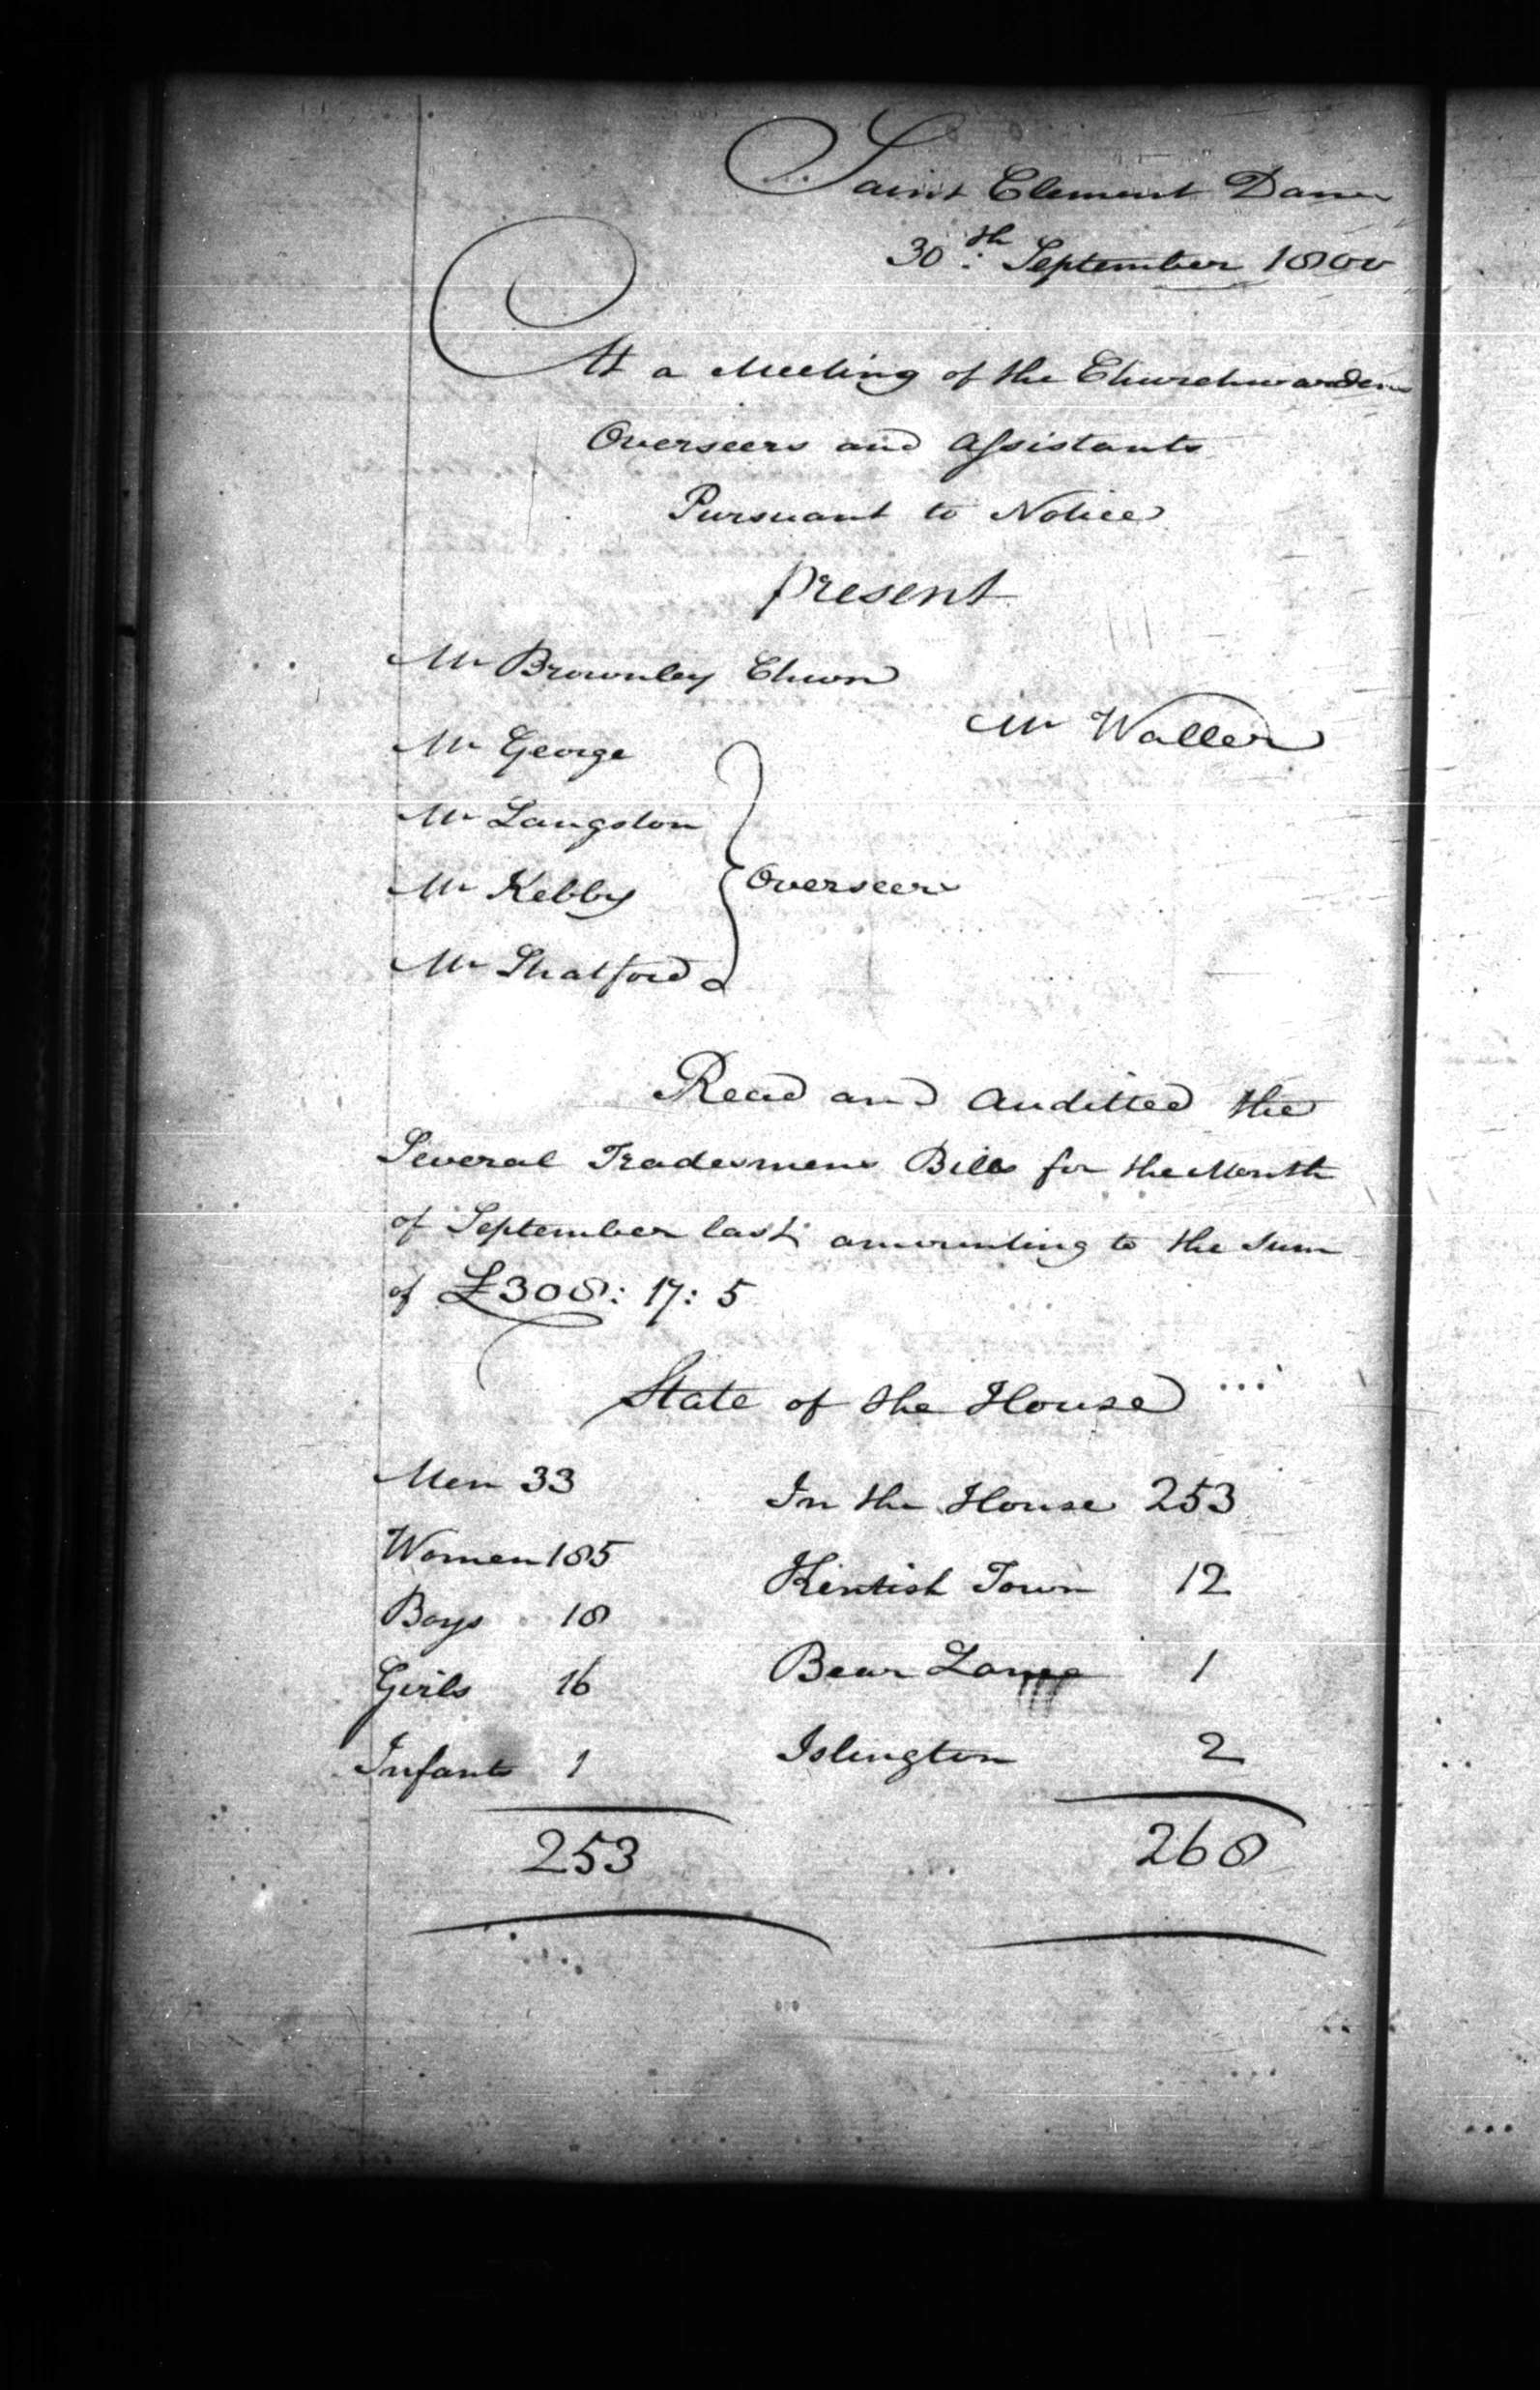 Saint Clement Danes
30th September 1800
At a Meeting of the Churchwardens
Overseers and Assistants
Pursuant to Notice
present
Mr Brownley Chwn
Mr Waller
Mr George
Mr Langston
Overseers
Mr Kebby
Mr Shatford
Read and Auditted the
Several Tradesmens Bills for the Month
of September last amounting to the Sum
of £308: 17: 5
State of the House
Men 33
In the House 253
Women 185
Kentish Town 12
Boys 18
Girls 16
Bear Lane 1
Infants 1
Islington 2
253
268